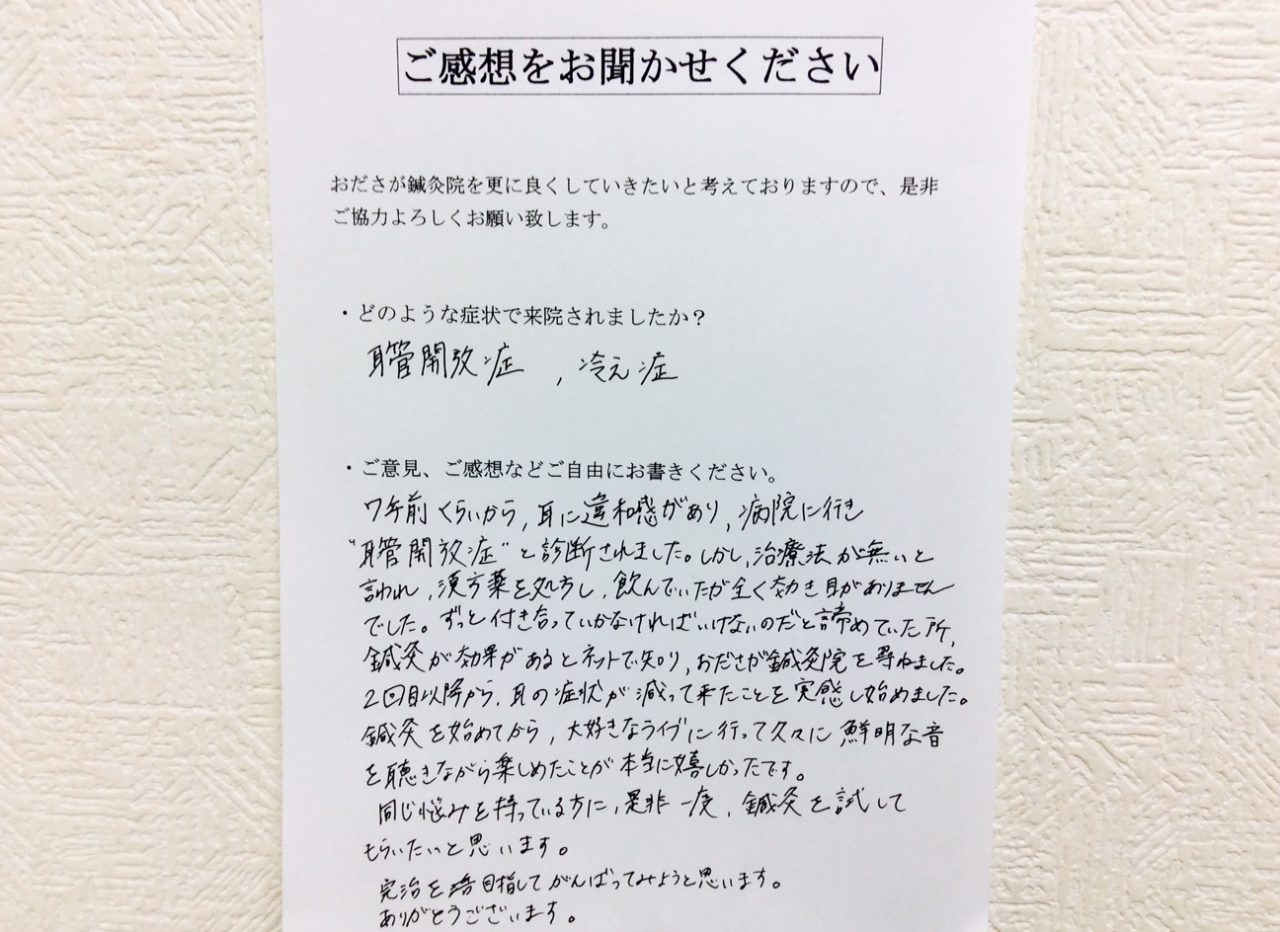 ご感想をお聞かせください
おださが鍼灸院を更に良くしていきたいと考えておりますので、是非
ご協力よろしくお願い致します。
・どのような症状で来院されましたか？
耳管開放症 , 冷え症
・ご意見、ご感想などご自由にお書きください。
7年前くらいから, 耳に違和感があり, 病院に行き
"耳管開放症"と診断されました。しかし, 治療法が無いと
言われ, 漢方薬を処方し, 飲んでいたが全く効き目がありません
でした。ずっと付き合っていかなければいけないのだと諦めていた所,
鍼灸が効果があるとネットで知り, おださが鍼灸院を尋ねました。
2回目以降から, 耳の症状が減って来たことを実感し始めました。
鍼灸を始めてから, 大好きなライブに行って久々に鮮明な音
を聴きながら楽しめたことが本当に嬉しかったです。
同じ悩みを持っている方に, 是非一度, 鍼灸を試して
もらいたいと思います。
完治を目指してがんばってみようと思います。
ありがとうございます。